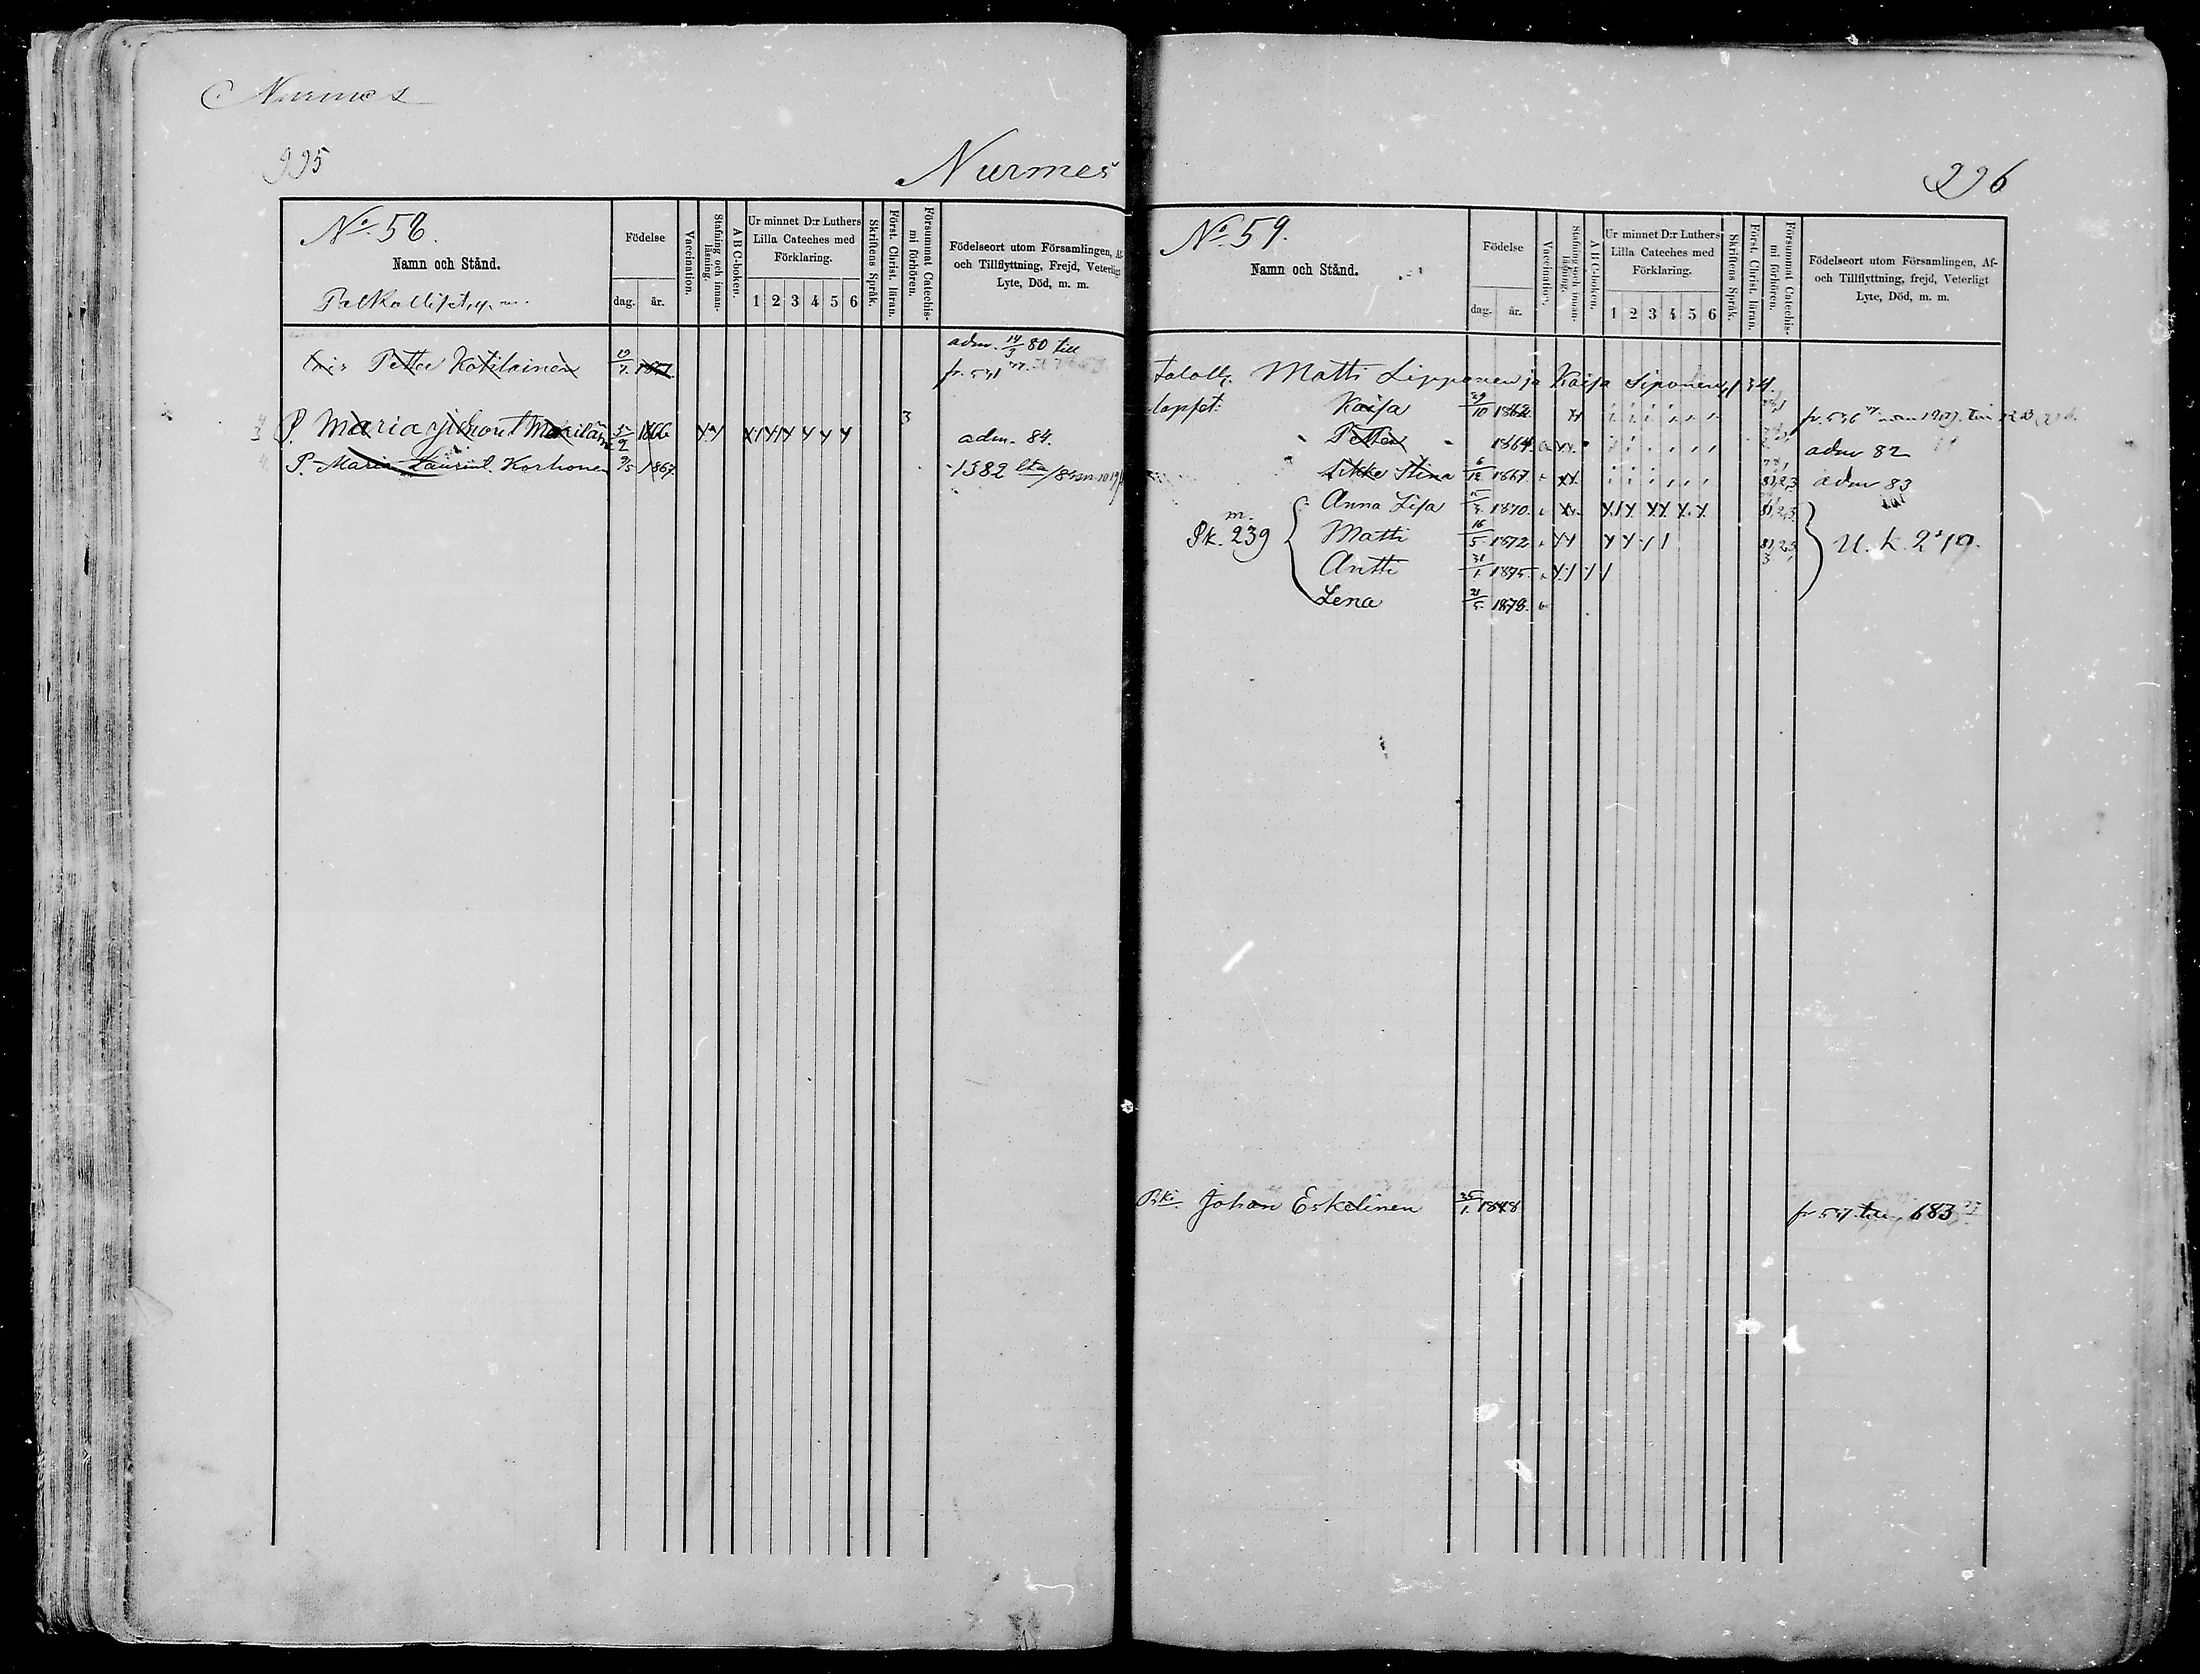 Nurmes
995
Nurmes
996
No 58.
Namn och Stånd.
Palkolliset, y. m.
Födelse
dag. år.
Vaccination.
Stafning och innanläsning.
ABC-boken.
Ur minnet D:r Luthers Lilla Cateches med Förklaring.
1 2 3 4 5 6
Skriftens Språk.
Först. Christ. läran.
Försummat Catechismi förhören.
Födelseort utom Församlingen, Af-
och Tillflyttning, Frejd, Veterligt
Lyte, Död, m. m.
Petter Kotilainen 19/7. 1851. adm. 14/3 80 till
fr. 531
P. Maria 5/2 1866 3 adm. 84.
P. Maria Laurint. Korhonen 9/5 1867. 1382
No 59.
Namn och Stånd.
Födelse
dag. år.
Vaccination.
Stafning och innanläsning.
ABC-boken.
Ur minnet D:r Luthers Lilla Cateches med Förklaring.
1 2 3 4 5 6
Skriftens Språk.
Först. Christ. läran.
Försummat Catechismi förhören.
Födelseort utom Församlingen, Af-
och Tillflyttning, frejd, Veterligt
Lyte, Död, m. m.
Matti Lipponen ja Kaisa Siponen
lapset: Kaisa 29/10 1862 fr. 536
Petter 1864 adm 82
Stina 6/12 1867 81,2,3 adm 83
Anna Lisa 1870. 81,2,3
m.
Pk. 239 Matti 16/5 1872 81,2,3 U. K. 249.
Antti 31/1. 1875
Lena 21/5. 1878.
Johan Eskelinen 25/1. 1848 fr 537 683